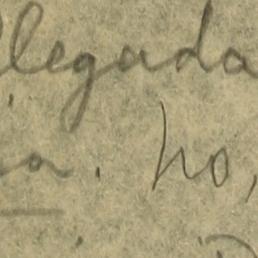 llegada
a. ho,